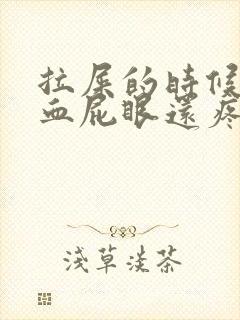 拉屎的時候
血屁眼還疼
淺草淡茶